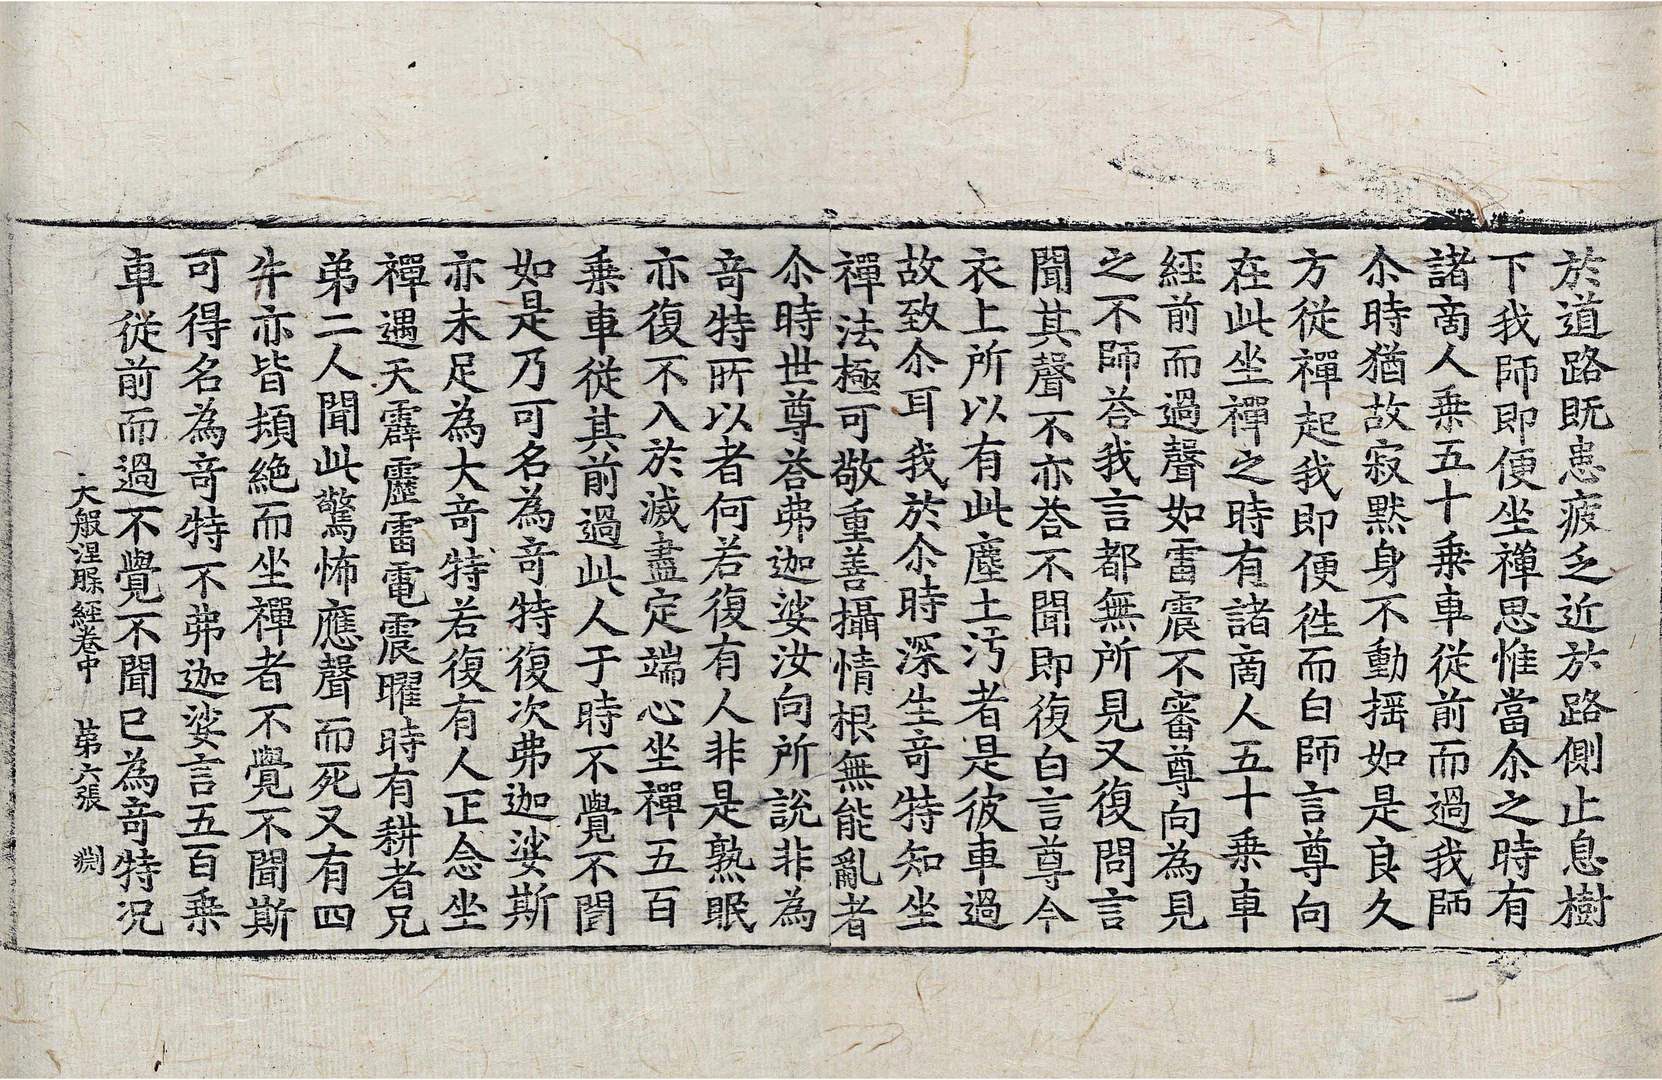 於道路既患疲乏近於路側止息樹
下我師即便坐禪思惟當尒之時有
諸商人乗五十乗車從前而過我師
尒時猶故寂黙身不動揺如是良久
方從禪起我即便徃而白師言尊向
在此坐禪之時有諸商人五十乗車
經前而過聲如雷震不審尊向為見
之不師荅我言都無所見又復問言
聞其聲不亦荅不聞即復白言尊今
衣上所以有此塵土汚者是彼車過
故致尒耳我於尒時深生竒特知坐
禪法極可敬重善攝情根無能亂者
尒時世尊荅弗迦娑汝向所說非為
竒特所以者何若復有人非是熟眠
亦復不入於滅盡定端心坐禪五百
乗車從其前過此人于時不覺不聞
如是乃可名為竒特復次弗迦娑斯
亦未足為大竒特若復有人正念坐
禪遇天霹靂雷電震曜時有耕者兄
弟二人聞此驚怖應聲而死又有四
牛亦皆頓絶而坐禪者不覺不聞斯
可得名為竒特不弗迦娑言五百乗
車從前而過不覺不聞已為竒特况
大般涅槃經卷中 第六張